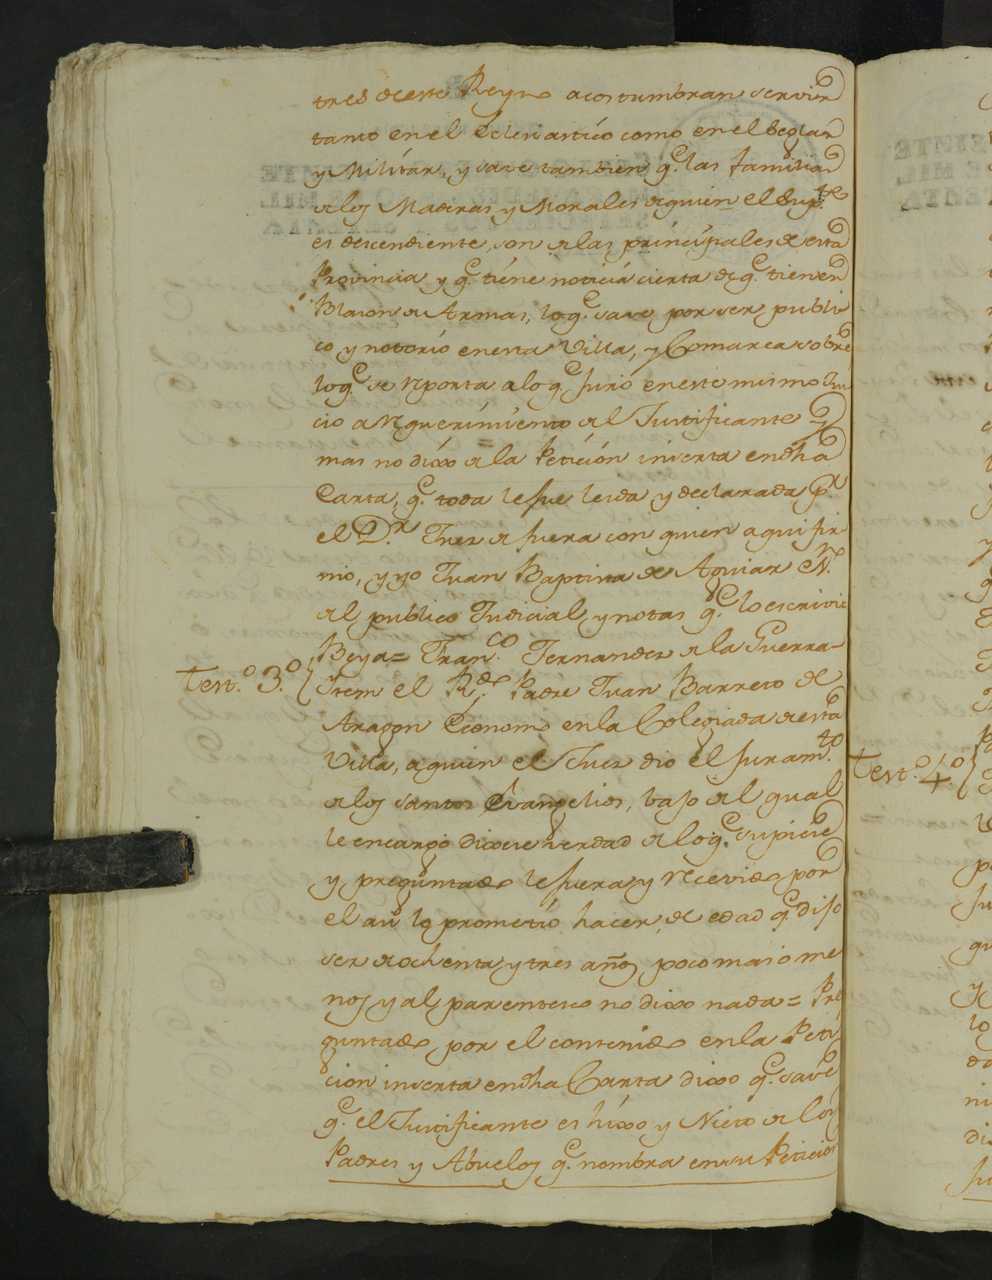 tres de este Reyno acostumbran servir
tanto en el Eclesiastico como en el Seglar
y Militar, y save tambien q.e las familias
de los Maderas y Morales de quien el Sup.te
es descendiente, son de las principales de esta
Provincia y q.e tiene noticia cierta de q.e tienen
Blason de Armas, lo q.e save por ser publi
co y notorio en esta Villa, y Comarca sobre
lo q.e se reporta a lo q.e juró en este mismo Jui
cio a requerimiento del Justificante y
mas no dixo de la Peticion inserta en dha
Carta, q.e toda le fue leida y declarada p.r
el D.r Juez de fuera con quien aqui fir
mó, y yo Juan Baptista de Aguiar
del publico Judicial y notas q.e lo escrivi=
Beya= Fran.co Fernandes de la Guerra=
Test.o 3.o Item el R.do Padre Juan Barreto de
Aragon Economo en la Colegiada de esta
Villa, a quien el Juez dio el juram.to
de los santos Evangelios, bajo del qual
le encargó dixese verdad de lo q.e supiere
y preguntado le fuera, y recevido por
el asi lo prometió hacer, de edad q.e dijo
ser de ochenta y tres años poco mas o me
nos y al parentesco no dixo nada= Pre
guntado por el contenido en la Peti
cion inserta en dha Carta dixo q.e save
q.e el Justificante es hixo y Nieto de los
Padres y Abuelos q.e nombra en su Peticion
Test.o 4.o